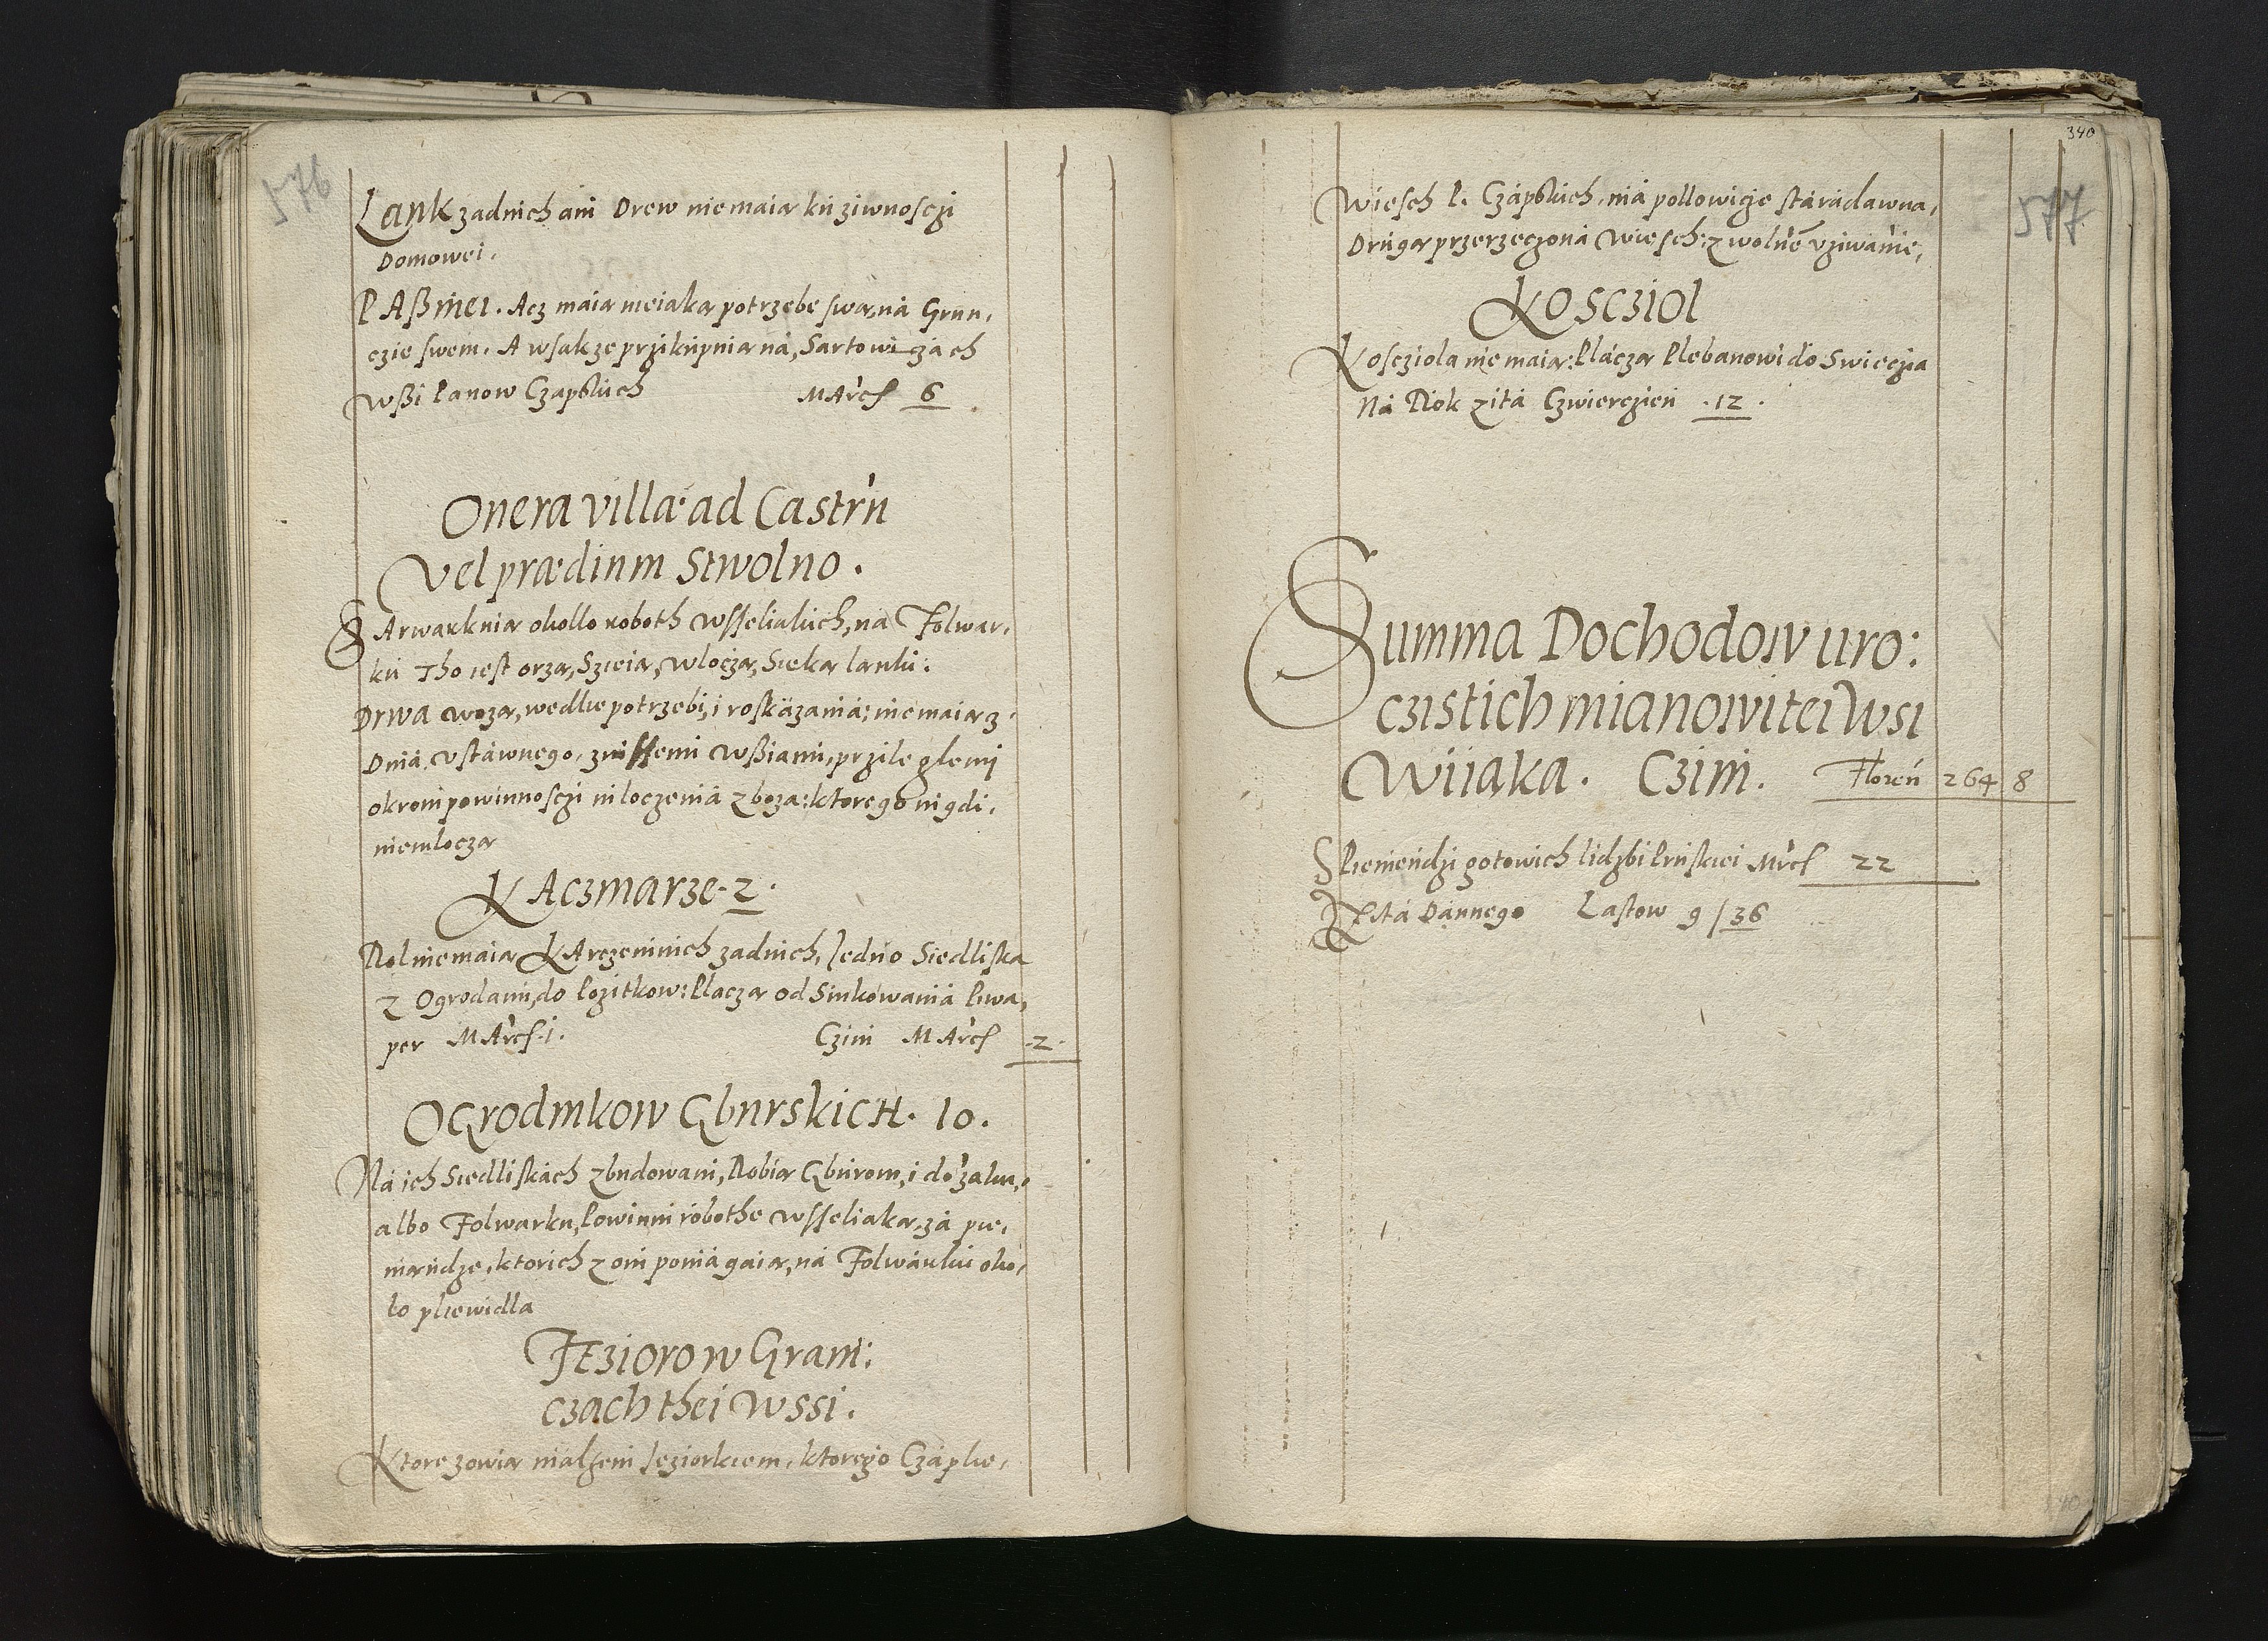 576
Lank zadnich ani Drew niemaia ku ziwnosczi
Domowei.
PAßmei. Acz maia nieiaka potrzebe swa, na Grun,
czie swem. A wsakze przikupuia na, Sartowiczach
wßi Panow Czapskich Marcß 6
Onera villæ ad Castru
Vel prædium Stwolno.
SArwarkuia okollo roboth wsseliakich, na Folwar,
ku Tho iest orza, Szieia, wlocza, Sieka lanki.
Drwa woza, wedlie potrzebi, i roskazania; niemaia z
Dnia, ustawnego, z inssemi wßiami, prziłeglemi
okrom powinnosczi mloczenia zboza: ktorego nigdi,
niemlocza
KAczmarze. 2.
Rol niemaia KArczemnich zadnich, Jedno Siedliska
z Ogrodami, do Pozitkow: Placza od Sinkowania Piwa,
per MArcß. i. Czini MArcß .2.
OGrodnikow Gburskich. 10.
Na ich Siedliskach zbudowani, Robia Gburom, i do zamku,
albo Folwarku, Powinni robothe wsseliaka, za pie,
niandze, ktorich z oni pomagaia, na Folwarku oko,
lo pliewidla
JEziorow Grani:
czach thei Wssi.
Ktore zowia malhem Jeziorkiem, ktorego Czapkie,
340
577
Wiesch P. Czapskich, na pollowicze staradawna,
Druga przerzeczona Wiesch: z wolne uziwanie,
KOSCZIOl
Kosciola niemaia: Placza Plebanowi do Swiecza
Na Rok zita Czwierczien .12.
Summa Dochodow uro:
czistich mianowitei Wsi
Wiiaka. Czini. Floren 264 8
Pieniendzi gotowich lidzbi Pruskiei Mrcß 22
Zita Dannego Lastow 9 / 36